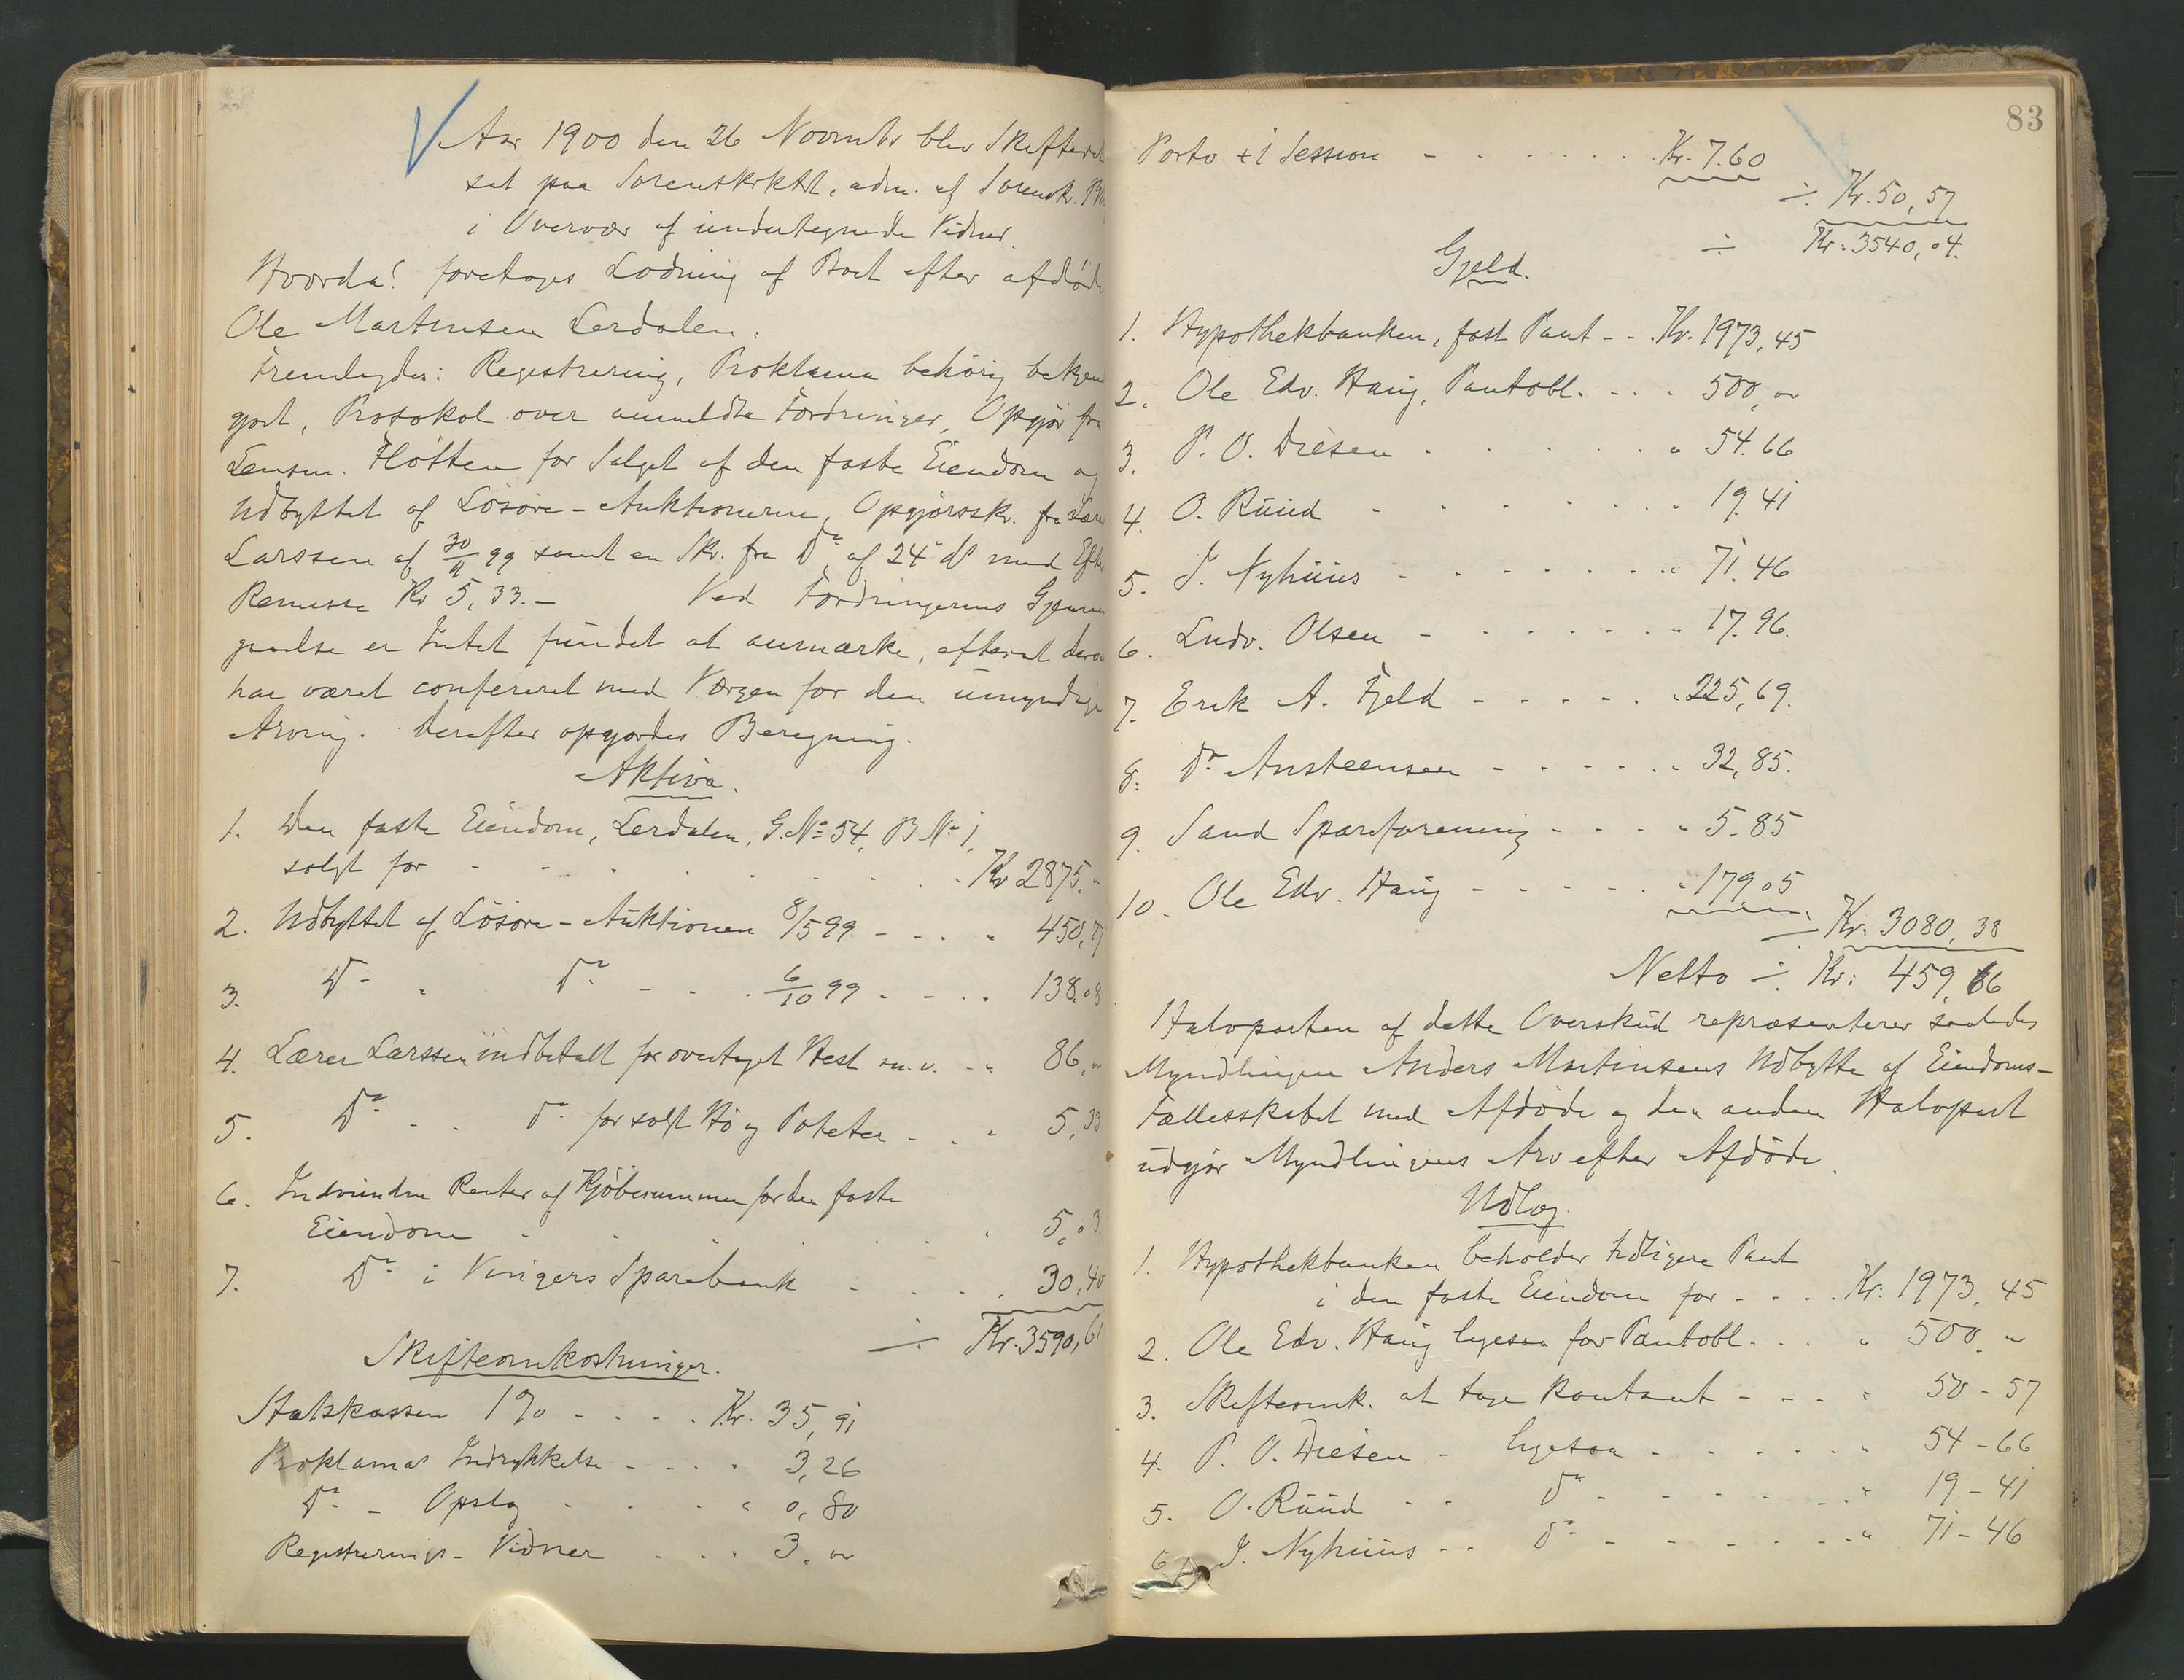 Aar 1900 den 26 Novembr blev Skifteret
sat paa Sorenskrktrt, adm. af Sorenskr.
i Overvær af undertegnede Vidner.
Hvorda! foretoges Lodning af Boet efter afdøde
Ole Martinsen Lerdalen.
Fremlagdes: Registrering, Proklama behørig bekjend
gjort, Protokol over anmeldte Fordringer, Opgjør fra
Lensm. Fløtten for Salget af den faste Eiendom og
Udbyttet af Løsøre-Auktionerne, Opgjørsskr. fra Lærer
Larssen af 30/11 99 samt en Skr. fra Do af 24 ds med
Remisse Kr 5,33.- Ved Fordringernes Gjennem
gaaelse er Intet fundet at anmærke, efterat derom
har været confereret med Værgen for den umyndige
Arving. Derefter opgjordes Beregning.
Aktiva.
1. Den faste Eiendom, Lerdalen, G.No 54, B No 1,
solgt for - - - - - Kr 2875. "
2. Udbyttet af Løsøre-Auktionen 8/5 99 - - - " 450,77
3. Do " Do - - - 6/10 99 - - - " 138,08
4. Lærer Larssen indbetalt for overtaget Hest m.v. - " 86, "
5. Do - - Do for solgt Hø og Poteter - - - " 5,33
6. Indvundne Renter af Kjøbesummen for den faste
Eiendom - - - - - " 5,03
7. Do i Vingers Sparebank - - - - 30,40
÷ Kr. 3590,61
Skifteomkostninger.
Statskassen 1% - - - - Kr. 35,91
Proklamas Indrykkelse - - - - " 3,26
Do - Opslag - - - " 0,80
Registrerings-Vidner - - - " 3. "
83
Porto + 1 Session - - - - - Kr. 7.60
÷ Kr. 50,57
÷ Kr. 3540,04.
Gjeld.
1. Hypothekbanken, fast Pant - - Kr. 1973,45
2. Ole Edv. Haug, Pantobl. - - - " 500, "
3. P. O. Diesen - - - - - " 54.66
4. O. Ruud - - - - - " 19.41
5. J. Nyhuus - - - - - " 71.46
6. Ludv. Olsen - - - - - " 17.96.
7. Erik A. Fjeld - - - - - " 225,69.
8. Dr Ansteensen - - - - - " 32,85.
9. Sand Spareforening - - - - " 5.85
10. Ole Edv. Haug - - - - - " 179,05
÷ Kr. 3080,38
Netto ÷ Kr: 459,66
Halvparten af dette Overskud repræsenterer saaledes
Myndlingen Anders Martinsens Udbytte af Eiendoms-
Fællesskabet med Afdøde og den anden Halvpart
udgjør Myndlingens Arv efter Afdøde.
Udlæg.
1. Hypothekbanken beholder tidligere Pant
i den faste Eiendom for - - - - Kr. 1973,45
2. Ole Edv. Haug ligesaa for Pantobl. - - - " 500. "
3. Skifteomk. at tage kontant - - - " 50-57
4. P. O. Diesen - ligesaa - - - - - " 54-66
5. O. Ruud - - Do - - - - - " 19-41
6. J. Nyhuus - - Do - - - - - " 71-46